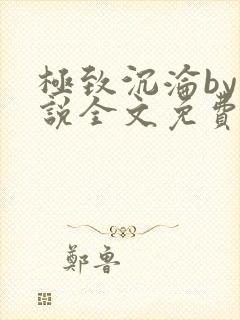 極致沉淪by
說全文免費
鄭魯